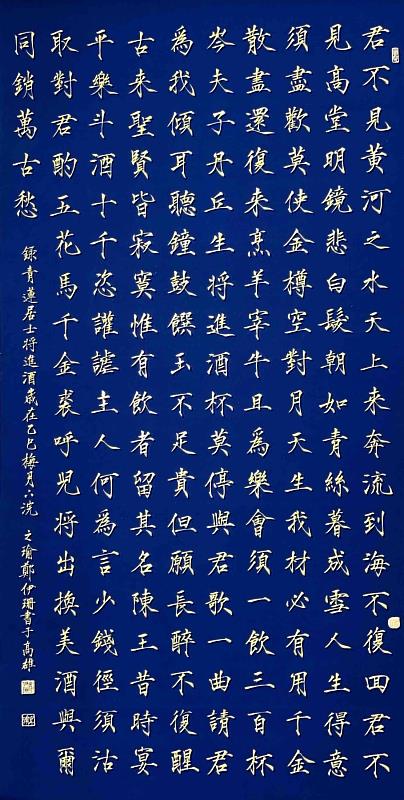 君不見黃河之水天上来奔流到海不復囬君不
見高堂明鏡悲白髮朝如青絲暮成雪人生得意
須盡歡莫使金樽空對月天生我材必有用千金
散盡還復来烹羊宰牛且為樂會須一飲三百杯
岑夫子丹丘生将進酒杯莫停與君歌一曲請君
為我傾耳聽鐘鼓饌玉不足貴但願長醉不復醒
古来聖賢皆寂寞惟有飲者留其名陳王昔時宴
平樂斗酒十千恣讙謔主人何為言少錢徑須沽
取對君酌五花馬千金裘呼兒将出換美酒與爾
同銷萬古愁
錄青蓮居士将進酒歲在乙巳梅月六浣 之瑜鄭伊珊書于高雄